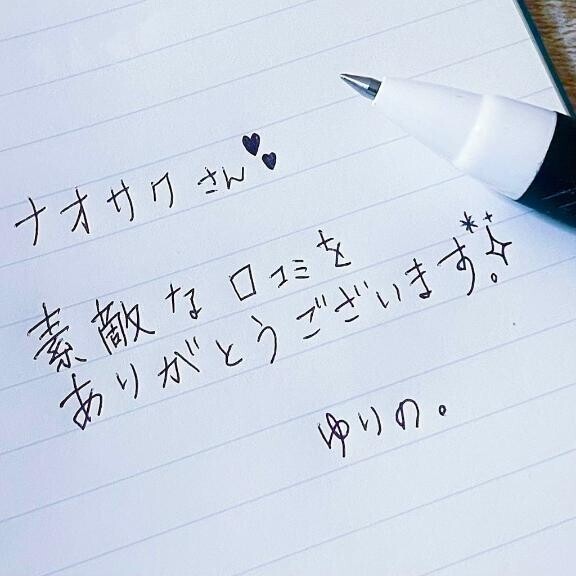 ナオサクさん♥♥
素敵な口コミを
ありがとうございます
ゆりの。